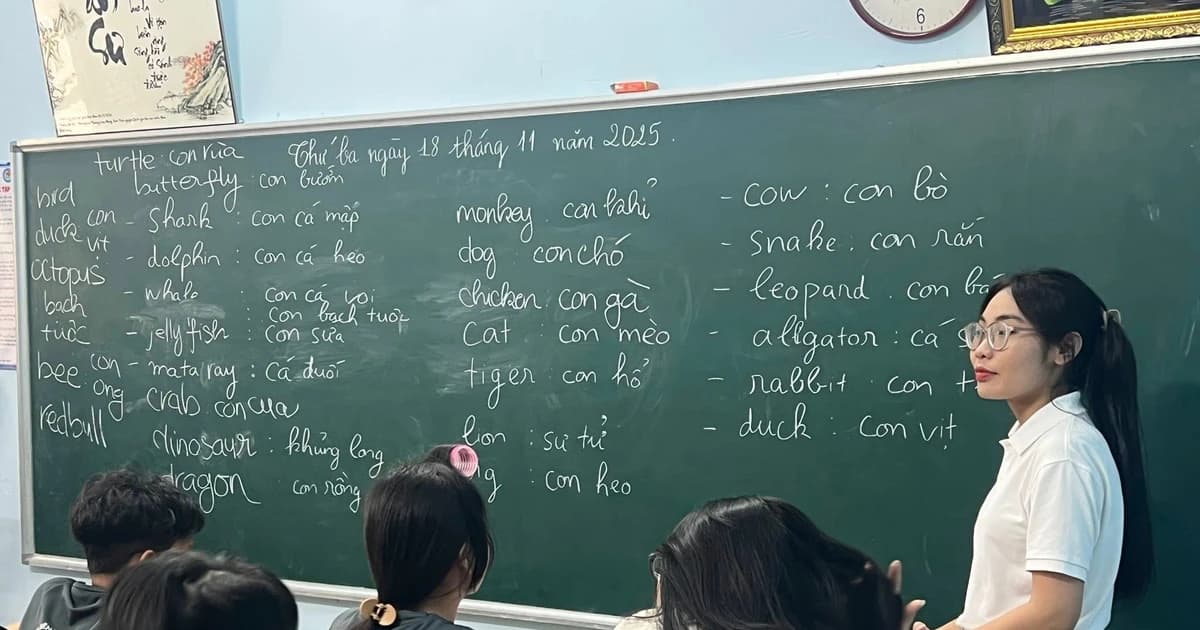 Sử
6
Thứ ba ngày 18 tháng 11 năm 2025.
turtle : con rùa
butterfly : con bướm
bird
duck con
vịt
octopus
bạch
tuộc
bee : con
ong
redbull
- Shark : con cá mập
- dolphin : con cá heo
- whale : con cá voi
: con bạch tuộc
- jelly fish : con sứa
- mataray : cá đuối
crab : con cua
dinosaur : khủng long
dragon con rồng
monkey : con khỉ
dog : con chó
chicken : con gà
cat : con mèo
tiger : con hổ
lion : sư tử
: con heo
- cow : con bò
- snake : con rắn
- leopard : con
- alligator : cá
- rabbit : con
- duck : con vịt